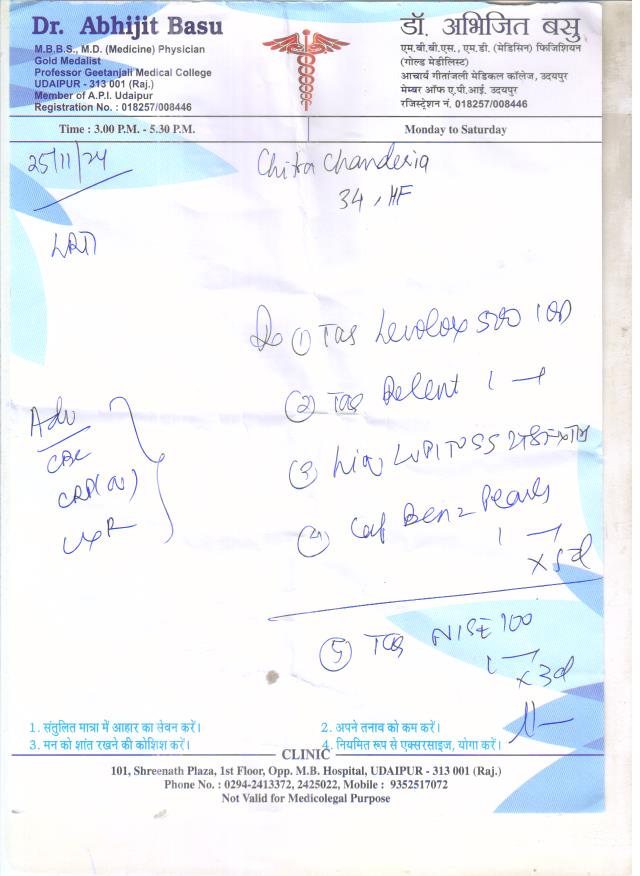 Dr. Abhijit Basu
M.B.B.S., M.D. (Medicine) Physician
Gold Medalist
Professor Geetanjali Medical College
UDAIPUR - 313 001 (Raj.)
Member of A.P.I. Udaipur
Registration No. : 018257/008446
डॉ. अभिजित बसु
एम.बी.बी.एस., एम.डी. (मेडिसिन) फिजिशियन
(गोल्ड मेडीलिस्ट)
आचार्य गीतांजली मेडिकल कॉलेज, उदयपुर
मेम्बर ऑफ ए.पी.आई. उदयपुर
रजिस्ट्रेशन नं. 018257/008446
Time : 3.00 P.M. - 5.30 P.M.
Monday to Saturday
25/11/24
Chitra Chanderia
34
LRTI
① Tab Levolox 500 1 OD
② Tab Relent 1
③ LUPITUSS
④ Cap Benz Pearls
1
x 5d
Adv
CBC
CRP
⑤ Tab NISE 100
1
x 3d
1. संतुलित मात्रा में आहार का सेवन करें।
2. अपने तनाव को कम करें।
3. मन को शांत रखने की कोशिश करें।
4. नियमित रूप से एक्सरसाइज, योगा करें।
CLINIC
101, Shreenath Plaza, 1st Floor, Opp. M.B. Hospital, UDAIPUR - 313 001 (Raj.)
Phone No. : 0294-2413372, 2425022, Mobile : 9352517072
Not Valid for Medicolegal Purpose